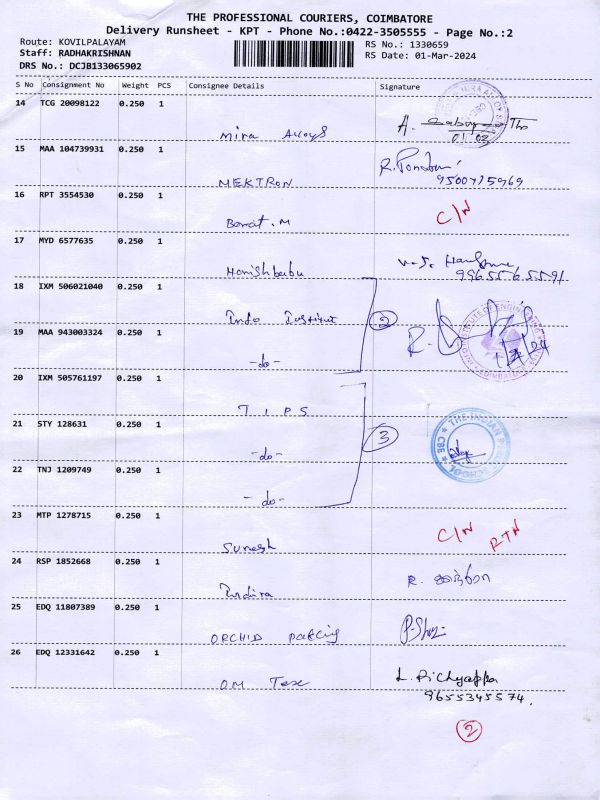 THE PROFESSIONAL COURIERS, COIMBATORE
Delivery Runsheet - KPT - Phone No.:0422-3505555 - Page No.:2
Route: KOVILPALAYAM
RS No.: 1330659
Staff: RADHAKRISHNAN
RS Date: 01-Mar-2024
DRS No.: DCJB133065902
S No Consignment No Weight PCS Consignee Details Signature
14 TCG 20098122 0.250 1
Mira Alloys A.
15 MAA 104739931 0.250 1
MEKTRON R.
16 RPT 3554530 0.250 1
C/N
17 MYD 6577635 0.250 1
Harishbabu
9965565591
18 IXM 506021040 0.250 1
Indo Institute 2
19 MAA 943003324 0.250 1
-do-
20 IXM 505761197 0.250 1
T I P S
21 STY 128631 0.250 1
-do- 3
22 TNJ 1209749 0.250 1
-do-
23 MTP 1278715 0.250 1
Suresh C/N RTN
24 RSP 1852668 0.250 1
Indira R. இந்திரா
25 EDQ 11807389 0.250 1
ORCHID
26 EDQ 12331642 0.250 1
OM Tex L. Pichyappa
9655345574.
2